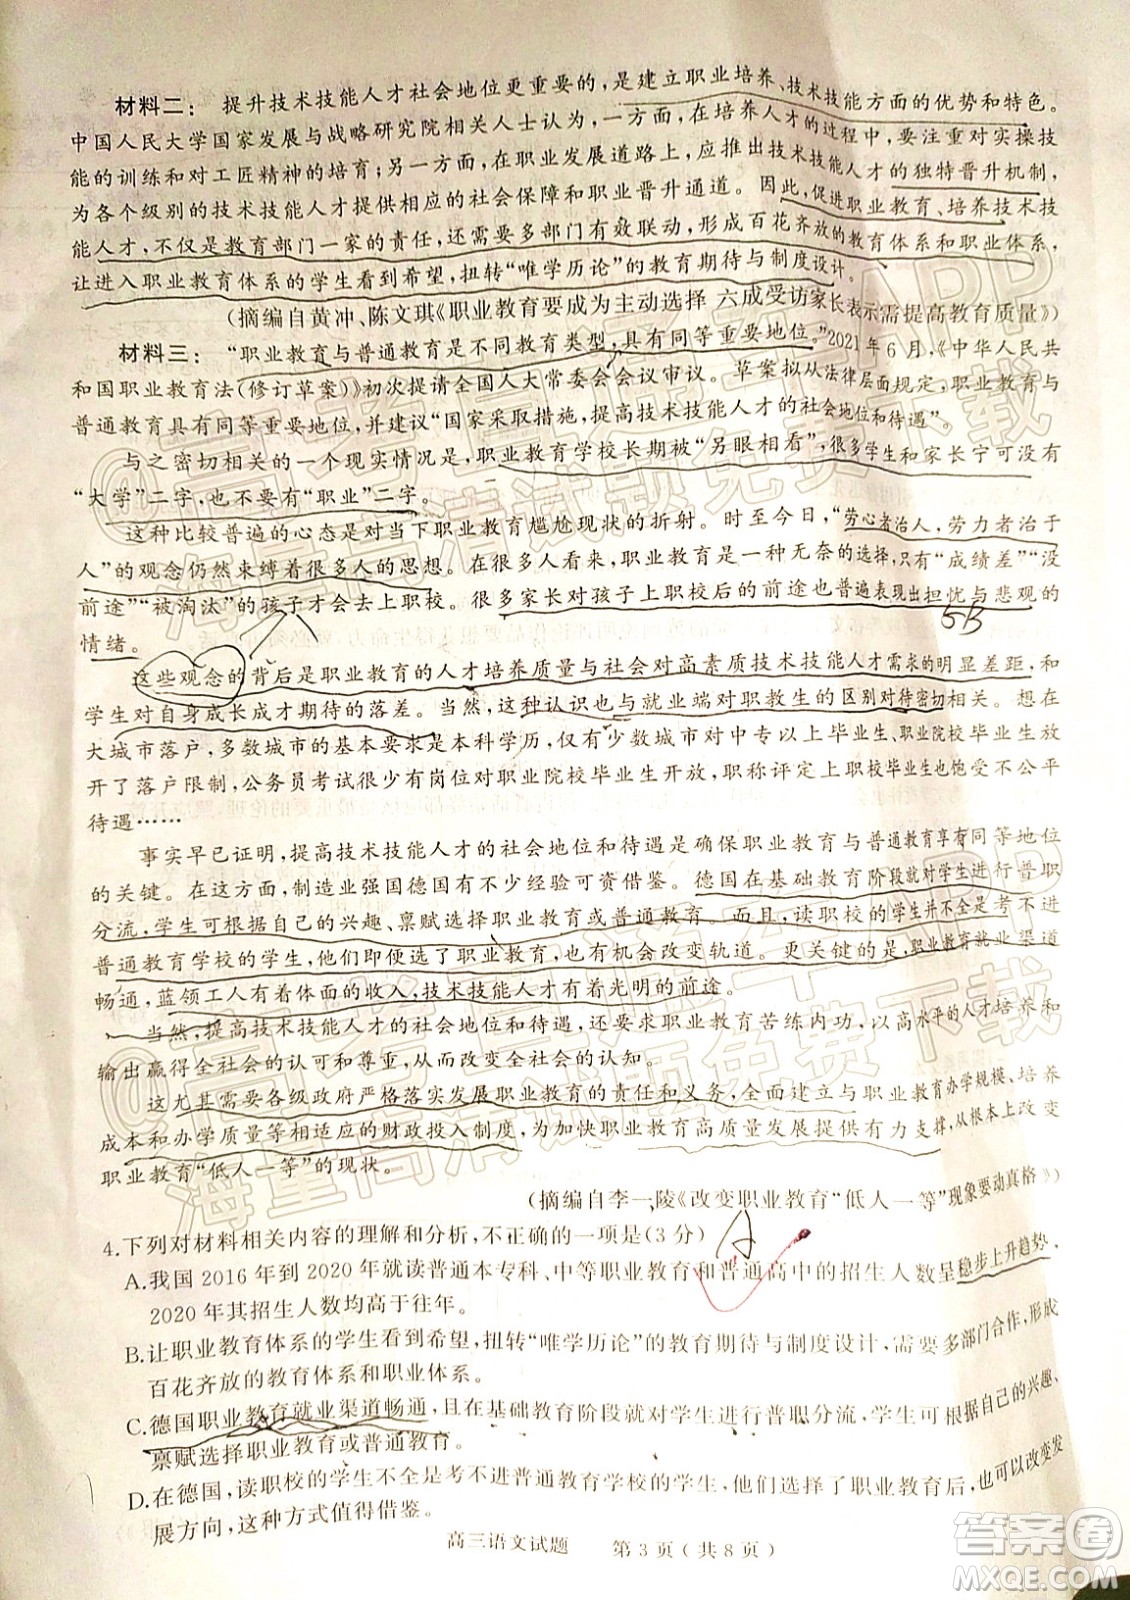 材料二：提升技术技能人才社会地位更重要的，是建立职业培养、技术技能方面的优势和特色。
中国人民大学国家发展与战略研究院相关人士认为，一方面，在培养人才的过程中，要注重对实操技
能的训练和对工匠精神的培育；另一方面，在职业发展道路上，应推出技术技能人才的独特晋升机制，
为各个级别的技术技能人才提供相应的社会保障和职业晋升通道。因此，促进职业教育、培养技术技
能人才，不仅是教育部门一家的责任，还需要多部门有效联动，形成百花齐放的教育体系和职业体系，
让进入职业教育体系的学生看到希望，扭转“唯学历论”的教育期待与制度设计。
（摘编自黄冲、陈文琪《职业教育要成为主动选择 六成受访家长表示需提高教育质量》）
材料三：“职业教育与普通教育是不同教育类型，具有同等重要地位。”2021年6月，《中华人民共
和国职业教育法（修订草案）》初次提请全国人大常委会会议审议。草案拟从法律层面规定，职业教育与
普通教育具有同等重要地位，并建议“国家采取措施，提高技术技能人才的社会地位和待遇”。
与之密切相关的一个现实情况是，职业教育学校长期被“另眼相看”，很多学生和家长宁可没有
“大学”二字，也不要有“职业”二字。
这种比较普遍的心态是对当下职业教育尴尬现状的折射。时至今日，“劳心者治人，劳力者治于
人”的观念仍然束缚着很多人的思想。在很多人看来，职业教育是一种无奈的选择，只有“成绩差”“没
前途”“被淘汰”的孩子才会去上职校。很多家长对孩子上职校后的前途也普遍表现出担忧与悲观的
情绪。
5B
这些观念的背后是职业教育的人才培养质量与社会对高素质技术技能人才需求的明显差距，和
学生对自身成长成才期待的落差。当然，这种认识也与就业端对职教生的区别对待密切相关。想在
大城市落户，多数城市的基本要求是本科学历，仅有少数城市对中专以上毕业生、职业院校毕业生
开了落户限制，公务员考试很少有岗位对职业院校毕业生开放，职称评定上职校毕业生也饱受不公平
待遇……
事实早已证明，提高技术技能人才的社会地位和待遇是确保职业教育与普通教育享有同等地位
的关键。在这方面，制造业强国德国有不少经验可资借鉴。德国在基础教育阶段就对学生进行普职
分流，学生可根据自己的兴趣、禀赋选择职业教育或普通教育。而且，读职校的学生并不全是考不进
普通教育学校的学生，他们即便选了职业教育，也有机会改变轨道。更关键的是，职业教育就业渠道
畅通，蓝领工人有着体面的收入，技术技能人才有着光明的前途。
当然，提高技术技能人才的社会地位和待遇，还要求职业教育苦练内功，以高水平的人才培养和
输出赢得全社会的认可和尊重，从而改变全社会的认知。
这尤其需要各级政府严格落实发展职业教育的责任和义务，全面建立与职业教育办学规模、培养
成本和办学质量等相适应的财政投入制度，为加快职业教育高质量发展提供有力支撑，从根本上改变
职业教育“低人一等”的现状。
（摘编自李一陵《改变职业教育“低人一等”现象要动真格》）
4.下列对材料相关内容的理解和分析，不正确的一项是（3分） A
A.我国2016年到2020年就读普通本专科、中等职业教育和普通高中的招生人数呈稳步上升趋势，
2020年其招生人数均高于往年。
B.让职业教育体系的学生看到希望，扭转“唯学历论”的教育期待与制度设计，需要多部门合作，形成
百花齐放的教育体系和职业体系。
C.德国职业教育就业渠道畅通，且在基础教育阶段就对学生进行普职分流，学生可根据自己的兴趣、
禀赋选择职业教育或普通教育。
D.在德国，读职校的学生不全是考不进普通教育学校的学生，他们选择了职业教育后，也可以改变发
展方向，这种方式值得借鉴。
高三语文试题 第3页（共8页）
答案圈
MXQE.COM